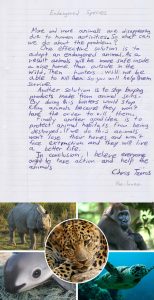 Endangered Species
More and more animals are disappearing
due to human activities. What can
we do about the problem?
One effective solution is to
adopt an endangered animal. As a
result animals will be more safe inside
a nice home than outside in the
wild. Then hunters will not be
able to kill them. So you will help them
survive.
Another solution is to stop buying
products made from animal skin.
By doing this hunters would stop
killing animals because they won't
have the to kill them.
Finally another idea is to
protect animal habitats from being
destroyed. If we do this animals
won't lose their homes and won't
face extinction and they will live
a better life.
In conclusion, I believe everyone
ought to take action and help the
animals.
Chris